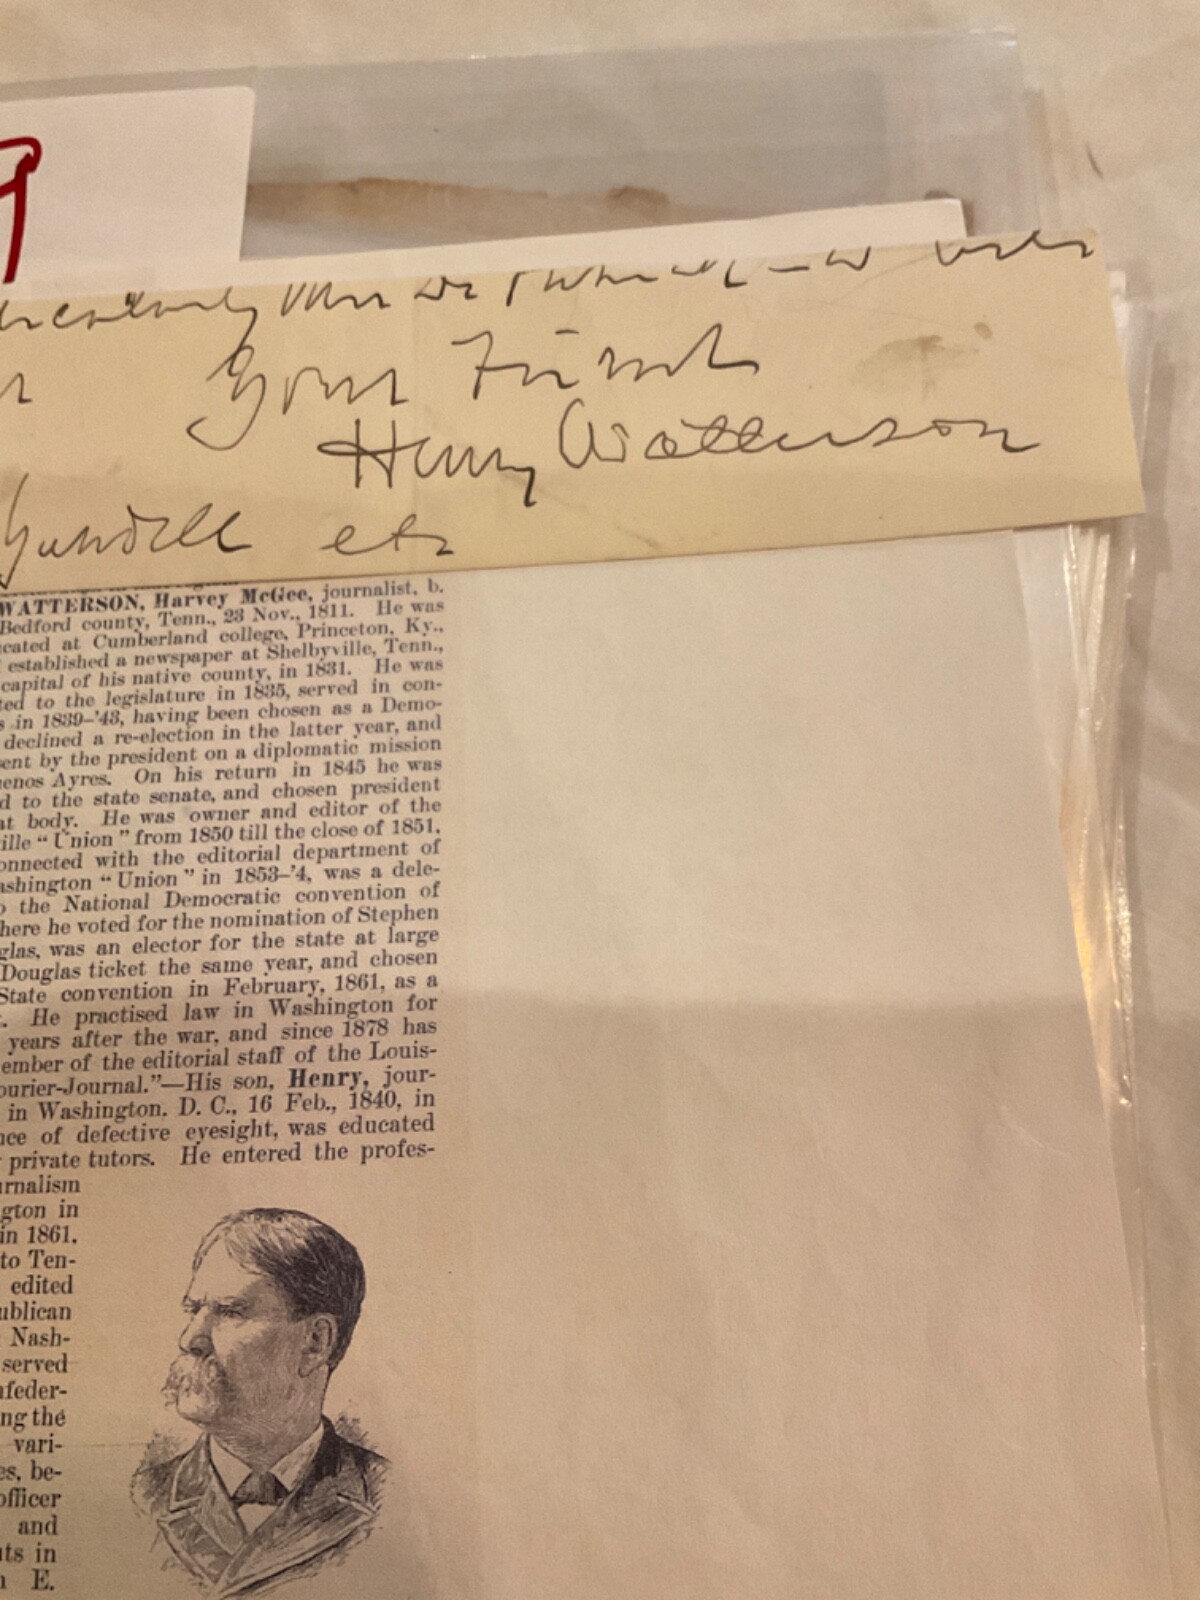 9
Your Friend
Henry Watterson
etc
WATTERSON, Harvey McGee, journalist, b.
Bedford county, Tenn., 23 Nov., 1811. He was
cated at Cumberland college, Princeton, Ky.,
established a newspaper at Shelbyville, Tenn.,
capital of his native county, in 1831. He was
ted to the legislature in 1835, served in con-
s in 1839-'43, having been chosen as a Demo-
declined a re-election in the latter year, and
ent by the president on a diplomatic mission
enos Ayres. On his return in 1845 he was
d to the state senate, and chosen president
at body. He was owner and editor of the
ille “Union” from 1850 till the close of 1851,
onnected with the editorial department of
ashington “Union” in 1853-'4, was a dele-
o the National Democratic convention of
here he voted for the nomination of Stephen
glas, was an elector for the state at large
Douglas ticket the same year, and chosen
State convention in February, 1861, as a
. He practised law in Washington for
years after the war, and since 1878 has
ember of the editorial staff of the Louis-
ourier-Journal.”—His son, Henry, jour-
in Washington. D. C., 16 Feb., 1840, in
nce of defective eyesight, was educated
private tutors. He entered the profes-
rnalism
gton in
in 1861.
to Ten-
edited
ublican
Nash-
served
nfeder-
ng the
vari-
es, be-
officer
and
ts in
E.